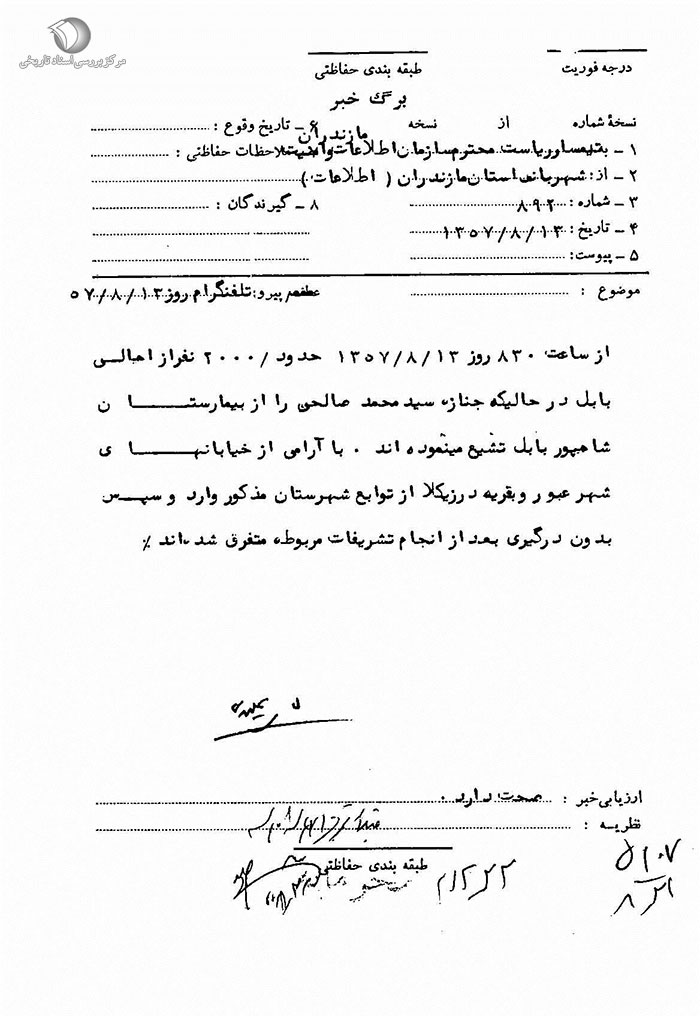 مرکز بررسی اسناد تاریخی
درجه فوریت
طبقه بندی حفاظتی
برگ خبر
نسخهٔ شماره از نسخه
۶ ـ تاریخ وقوع :
مازندران
۱ ـ بتیمسار ریاست محترم سازمان اطلاعات و امنیت
ملاحظات حفاظتی :
۲ ـ از: شهربانی استان مازندران ( اطلاعات )
۳ ـ شماره : ۸۹۲
۸ ـ گیرندگان :
۴ ـ تاریخ : ۱۳۵۷/۸/۱۳
۵ ـ پیوست:
موضوع :
پیرو: تلفنگرام روز ۵۷/۸/۱۳
از ساعت ۸۳۰ روز ۱۳۵۷/۸/۱۳ حدود /۲۰۰۰ نفر از اهالی
بابل در حالیکه جنازه سید محمد صالحی را از بیمارستان
شاهپور بابل تشیع مینموده اند ۰ با آرامی از خیابانهای
شهر عبور و بقریه درزیکلا از توابع شهرستان مذکور وارد و سپس
بدون درگیری بعد از انجام تشریفات مربوطه متفرق شده اند ٪
ارزیابی خبر : صحت دارد ۰
نظریه :
طبقه بندی حفاظتی